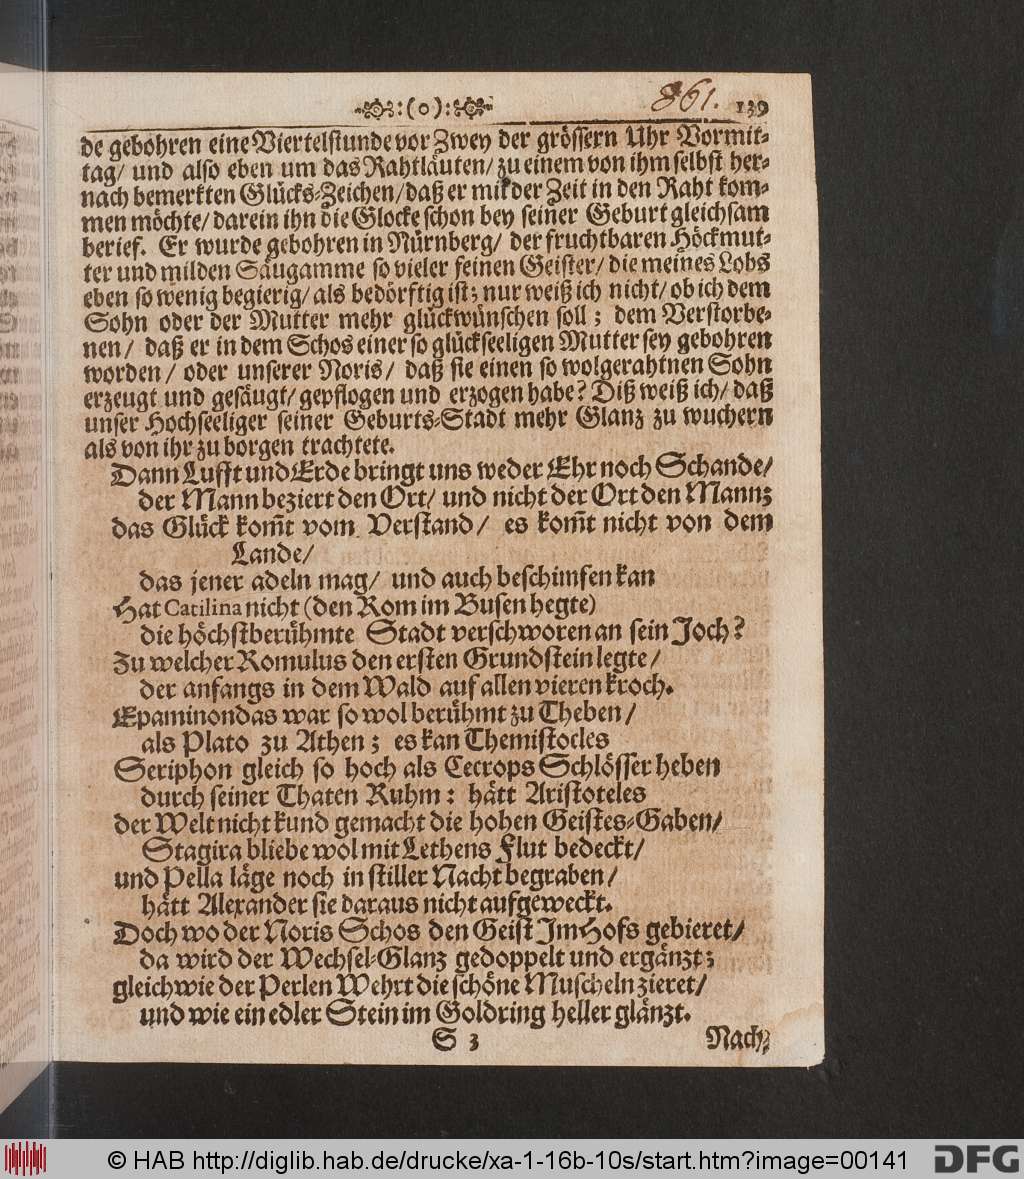 :(o): 861. 139
de gebohren eine Viertelstunde vor Zwey der grössern Uhr Vormit-
tag/ und also eben um das Rahtläuten/ zu einem von ihm selbst her-
nach bemerkten Glücks-Zeichen/ daß er mit der Zeit in den Raht kom-
men möchte/ darein ihn die Glocke schon bey seiner Geburt gleichsam
berief. Er wurde gebohren in Nürnberg/ der fruchtbaren Höckmut-
ter und milden Säugamme so vieler feinen Geister/ die meines Lobs
eben so wenig begierig/ als bedörftig ist; nur weiß ich nicht/ ob ich dem
Sohn oder der Mutter mehr glückwünschen soll; dem Verstorbe-
nen/ daß er in dem Schos einer so glückseeligen Mutter sey gebohren
worden/ oder unserer Noris/ daß sie einen so wolgerahtnen Sohn
erzeugt und gesäugt/ gepflogen und erzogen habe? Diß weiß ich/ daß
unser Hochseeliger seiner Geburts-Stadt mehr Glanz zu wuchern
als von ihr zu borgen trachtete.
Dann Lufft und Erde bringt uns weder Ehr noch Schande/
der Mann beziert den Ort/ und nicht der Ort den Mann;
das Glück kom̃t vom Verstand/ es kom̃t nicht von dem
Lande/
das jener adeln mag/ und auch beschimfen kan
Hat Catilina nicht (den Rom im Busen hegte)
die höchstberühmte Stadt verschworen an sein Joch?
Zu welcher Romulus den ersten Grundstein legte/
der anfangs in dem Wald auf allen vieren kroch.
Epaminondas war so wol berühmt zu Theben/
als Plato zu Athen; es kan Themistocles
Seriphon gleich so hoch als Cecrops Schlösser heben
durch seiner Thaten Ruhm: hätt Aristoteles
der Welt nicht kund gemacht die hohen Geistes-Gaben/
Stagira bliebe wol mit Lethens Flut bedeckt/
und Pella läge noch in stiller Nacht begraben/
hätt Alexander sie daraus nicht aufgeweckt.
Doch wo der Noris Schos den Geist ImHofs gebieret/
da wird der Wechsel-Glanz gedoppelt und ergänzt;
gleichwie der Perlen Wehrt die schöne Muscheln zieret/
und wie ein edler Stein im Goldring heller glänzt.
S 3 Nach-
© HAB http://diglib.hab.de/drucke/xa-1-16b-10s/start.htm?image=00141 DFG